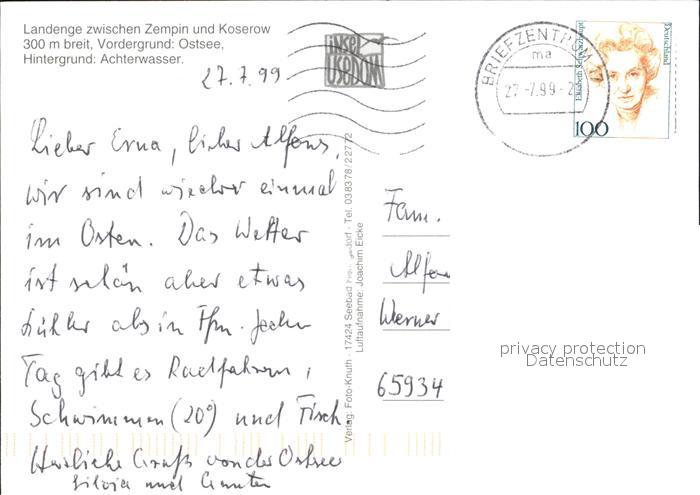 Landenge zwischen Zempin und Koserow
300 m breit, Vordergrund: Ostsee,
Hintergrund: Achterwasser.
27.7.99
INSEL
USEDOM
BRIEFZENTRUM 17
ma
27.-7.99-2
Elisabeth Schwarzhaupt
Deutschland
100
Lieber Erna, lieber Alfons,
wir sind wieder einmal
im Osten. Das Wetter
ist schön aber etwas
kühler als in Ffm. Jeden
Tag gibt es Radfahren,
Schwimmen (20°) und Fisch.
Herzliche Grüße von der Ostsee
Silvia und Günter
Verlag: Foto-Knuth · 17424 Seebad · Tel. 038378/22772
Luftaufnahme: Joachim Eicke
Fam.
Alfons
Werner
65934
privacy protection
Datenschutz